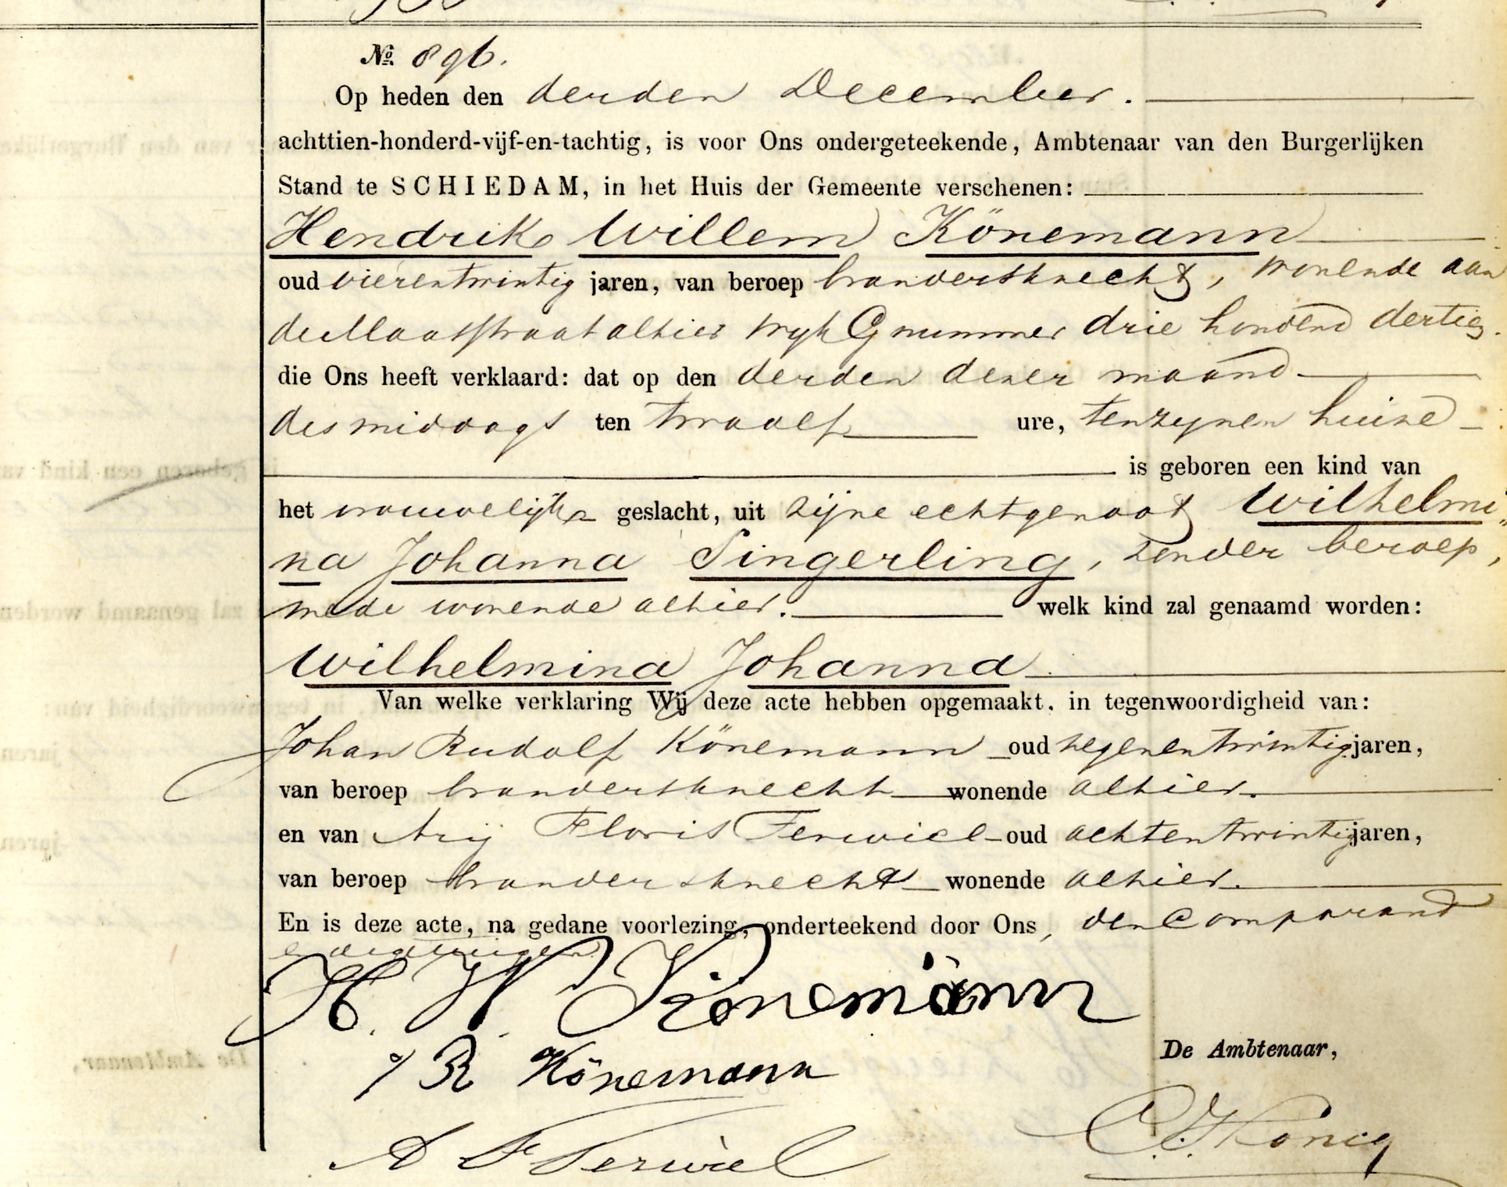 № 896.
Op heden den derden December.
achttien-honderd-vijf-en-tachtig, is voor Ons ondergeteekende, Ambtenaar van den Burgerlijken
Stand te SCHIEDAM, in het Huis der Gemeente verschenen:
Hendrik Willem Könemann
oud vierentwintig jaren, van beroep brandersknecht, wonende aan
de Maasstraat alhier wijk G nummer drie honderd dertig.
die Ons heeft verklaard: dat op den derden dezer maand
des middags ten twaalf ure, ten zijnen huize
is geboren een kind van
het vrouwelijke geslacht, uit zijne echtgenoot Wilhelmi„
na Johanna Singerling, zonder beroep,
mede wonende alhier. welk kind zal genaamd worden:
Wilhelmina Johanna
Van welke verklaring Wij deze acte hebben opgemaakt, in tegenwoordigheid van:
Johan Rudolf Könemann oud negenentwintig jaren,
van beroep brandersknecht wonende alhier.
en van Arij Floris Terwiel oud achtentwintig jaren,
van beroep brandersknecht wonende alhier.
En is deze acte, na gedane voorlezing, onderteekend door Ons, den comparand
en de getuigen.
H. W. Könemann
J R Könemann
De Ambtenaar,
A F Terwiel